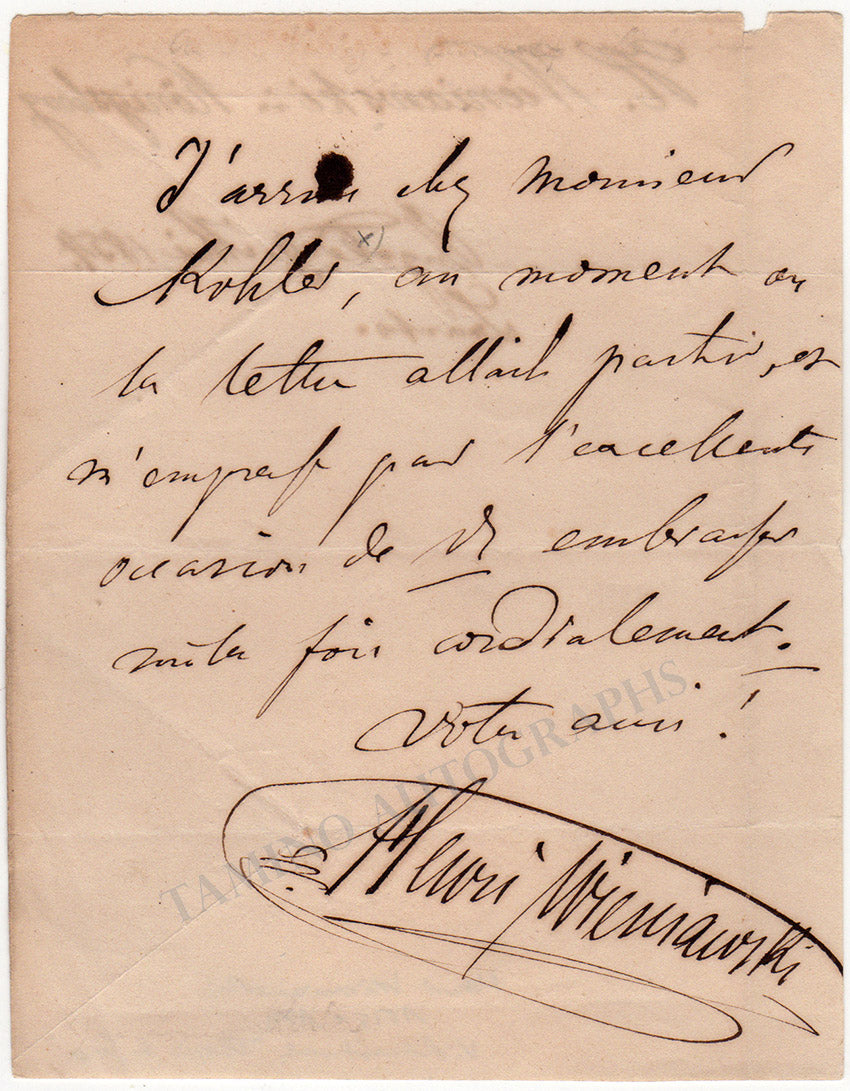 J'arrive chez Monsieur
Kohler, x) au moment ou
la lettre allait partir, et
m'empresse par l'excellente
occasion de vs embrasser
mille fois cordialement.
votre ami !
Henri Wieniawski
TAMINO AUTOGRAPHS